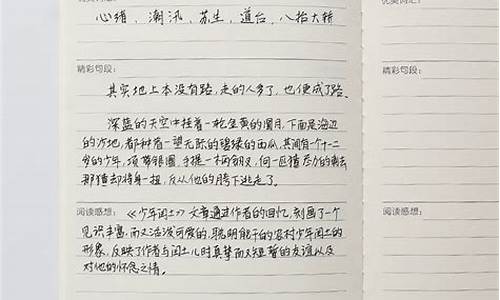 心绪、潮汛、苏生、道台、八抬大轿
精彩句段：
其实地上本没有路，走的人多了，也便成了路。
深蓝的天空中挂着一轮金黄的圆月，下面是海边
的沙地，都种着一望无际的碧绿的西瓜，其间有一个十一二
岁的少年，项带银圈，手捏一柄钢叉，向一匹猹尽力的刺去
那猹却将身一扭，反从他的胯下逃走了。
阅读感想：
《少年闰土》文章通过作者的回忆，刻画了一个
见识丰富，而又活泼可爱的，聪明能干的农村少年闰土的
形象，反映了作者与闰土儿时真挚而又短暂的友谊以及
对他的怀念之情。
精彩句段：
阅读感想：